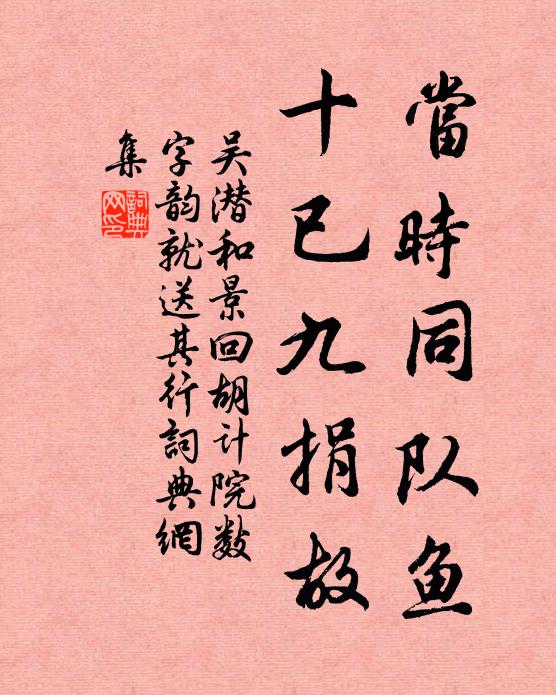 當時同队鱼
十已九捐故
吴潜和景回胡计院数
字韵就送其行詞典網
集
詞典網印